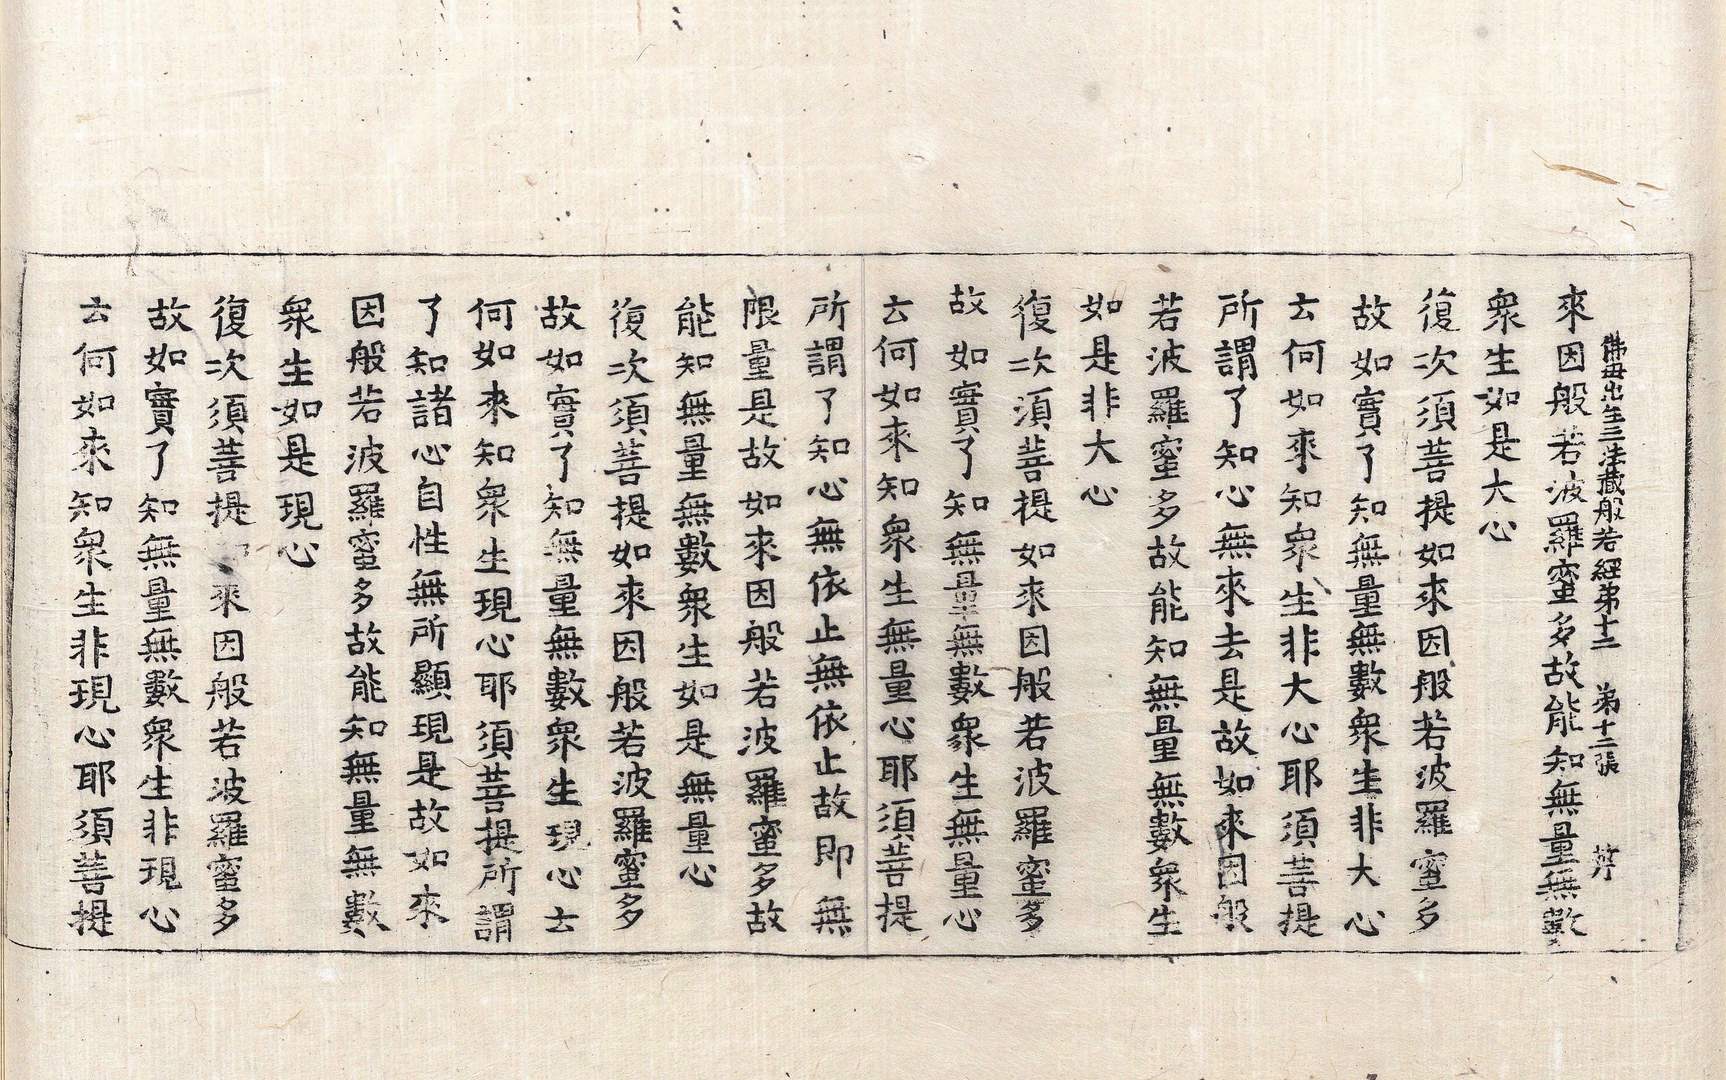 佛母出生三法藏般若經弟十二 弟十二張
來因般若波羅蜜多故能知無量無數
衆生如是大心
復次須菩提如來因般若波羅蜜多
故如實了知無量無數衆生非大心
云何如來知衆生非大心耶須菩提
所謂了知心無來去是故如來因般
若波羅蜜多故能知無量無數衆生
如是非大心
復次須菩提如來因般若波羅蜜多
故如實了知無量無數衆生無量心
云何如來知衆生無量心耶須菩提
所謂了知心無依止無依止故即無
限量是故如來因般若波羅蜜多故
能知無量無數衆生如是無量心
復次須菩提如來因般若波羅蜜多
故如實了知無量無數衆生現心云
何如來知衆生現心耶須菩提所謂
了知諸心自性無所顯現是故如來
因般若波羅蜜多故能知無量無數
衆生如是現心
復次須菩提如來因般若波羅蜜多
故如實了知無量無數衆生非現心
云何如來知衆生非現心耶須菩提